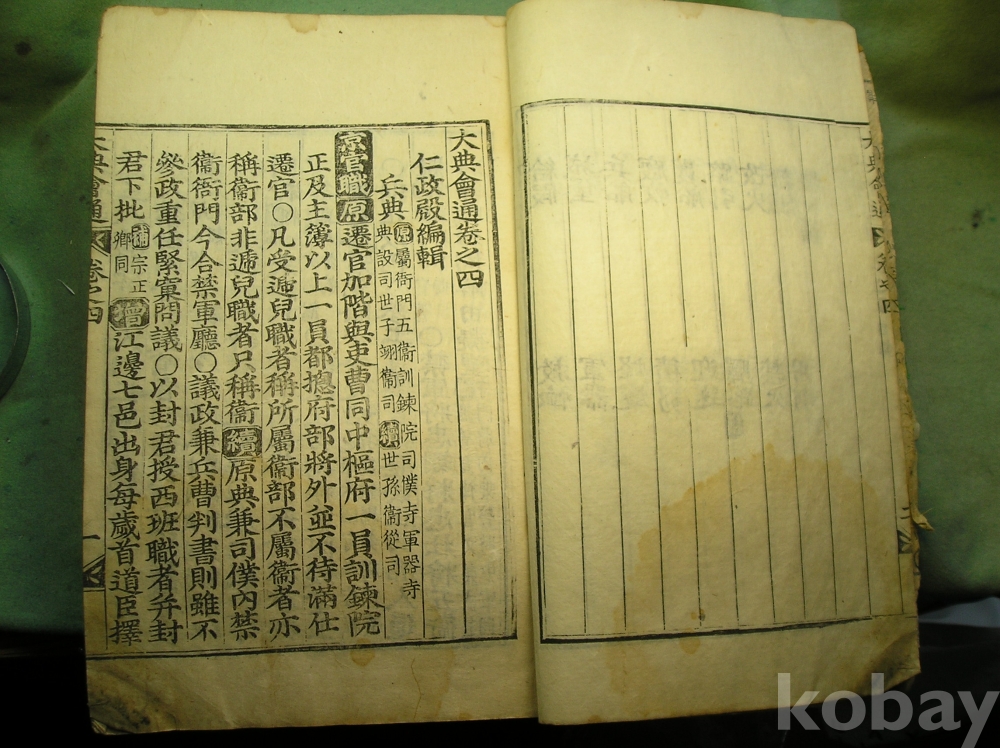 大典會通卷之四
仁政殿編輯
兵典 原屬衙門五衛訓鍊院司僕寺軍器寺
典設司世子翊衛司續世孫衛從司
京官職原遷官加階與吏曹同中樞府一員訓鍊院
正及主簿以上一員都摠府部將外並不待滿仕
遷官〇凡受遞兒職者稱所屬衛部不屬衛者亦
稱衛部非遞兒職者只稱衛續原典兼司僕內禁
衛衙門今合禁軍廳〇議政兼兵曹判書則雖不
參政重任緊窠問議〇以封君授西班職者弁封
君下批補宗正
卿同增江邊七邑出身每歲首道臣擇
大典會通
卷之四
一
大典會通
卷之四
kobay